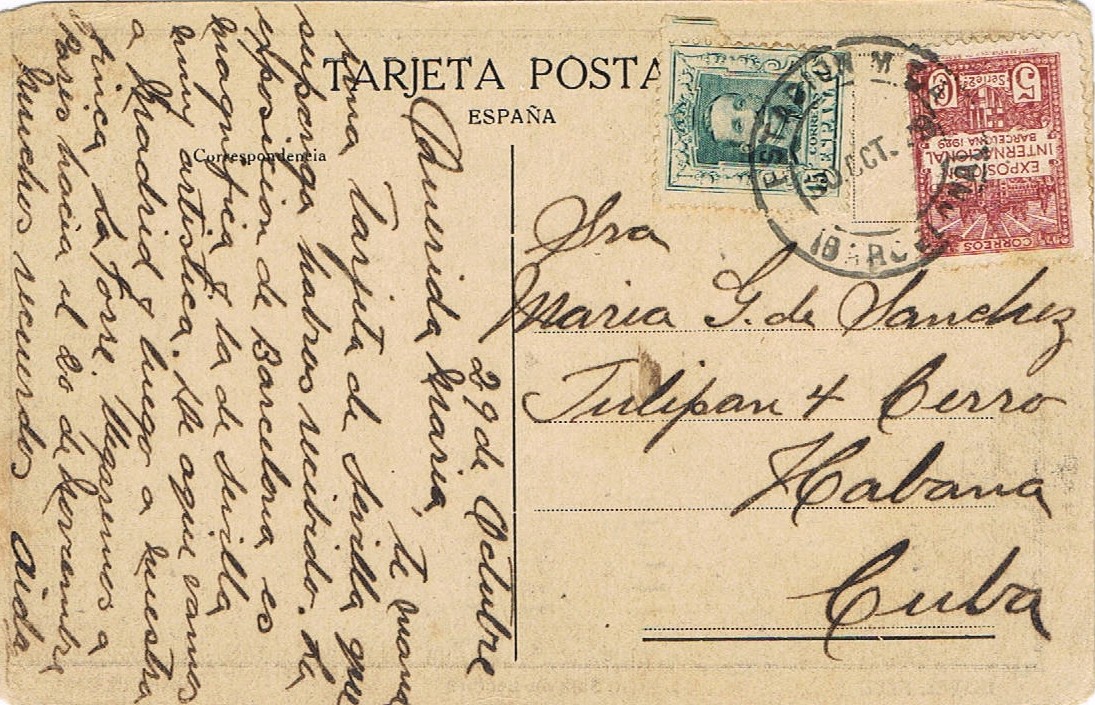 TARJETA POSTA
ESPAÑA
Correspondencia
29 de Octubre
Querida Maria,
te mande
una tarjeta de Sevilla que
supongo habras recibido. La
exposicion de Barcelona es
magnifica & la de Sevilla
muy artistica. De aqui vamos
a Madrid & luego a nuestra
finca, la Torre. Llegaremos a
Paris hacia el 20 de Novembre
Muchos recuerdos Aida
Sra
Maria G. de Sanchez
Tulipan 4 Cerro
Habana
Cuba
CORREOS
15
OCT.
BARCELONA
5
Serie 2
EXPOSICION
INTERNACIONAL
BARCELONA 1929
CORREOS